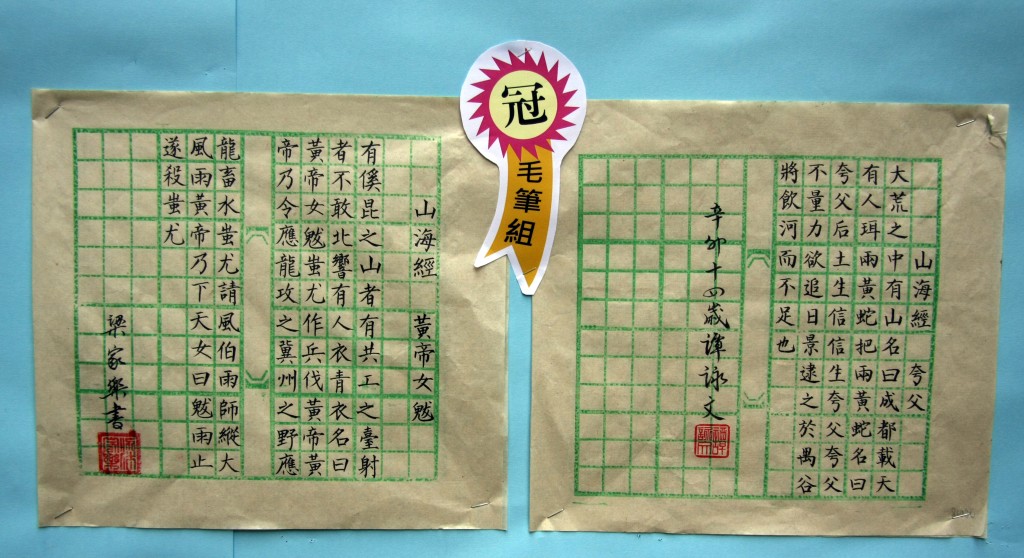 冠
毛筆組
山海經 夸父
大荒之中有山名曰成都載天
有人珥兩黃蛇把兩黃蛇名曰
夸父后土生信信生夸父夸父
不量力欲追日景逮之於禺谷
將飲河而不足也
辛卯十四歲譚詠文
山海經 黃帝女魃
有係昆之山者有共工之臺射
者不敢北響有人衣青衣名曰
黃帝女魃蚩尤作兵伐黃帝黃
帝乃令應龍攻之冀州之野應
龍畜水蚩尤請風伯雨師縱大
風雨黃帝乃下天女曰魃雨止
遂殺蚩尤
梁家樂書